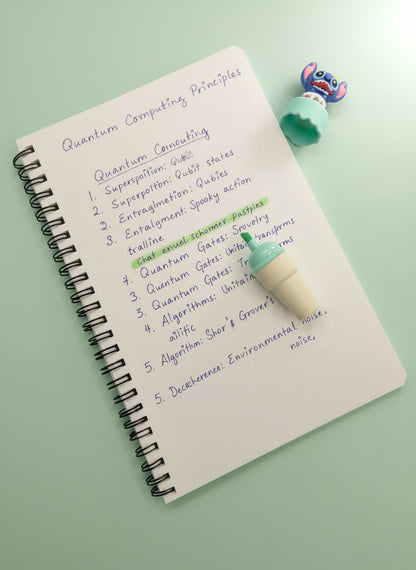 Quantum Computing Principles
Quantum Conouting
1. Superspoition: Qubit
2. Superpoition: Qubit states
2. Entraglmetion: Qubies
3. Entalgment: Spooky action
tralline
Chat enuel schormer Pastpies
4. Quantum Gates: Srovelry
3. Quantum Gates: Unitaty transprms
3. Quantum Gates:
4. Algorithms: Unitain
ailific
5. Algorithm: Shor's & Grover's
5. Decacherence: Environmental noise,
noise,